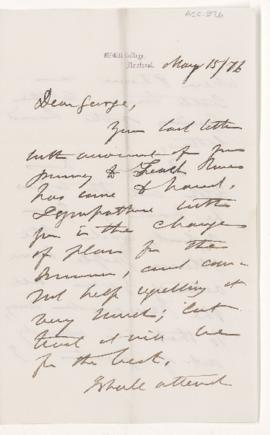 ACC-876
McGill College,
Montreal.
May 15/76
Dear George,
Your last letter
with account of your
journey to
has come to hand.
I sympathise with
you in the changes
of plan for the
summer, and can
not help regretting it
very much; but
trust it will be
for the best.
I shall attend